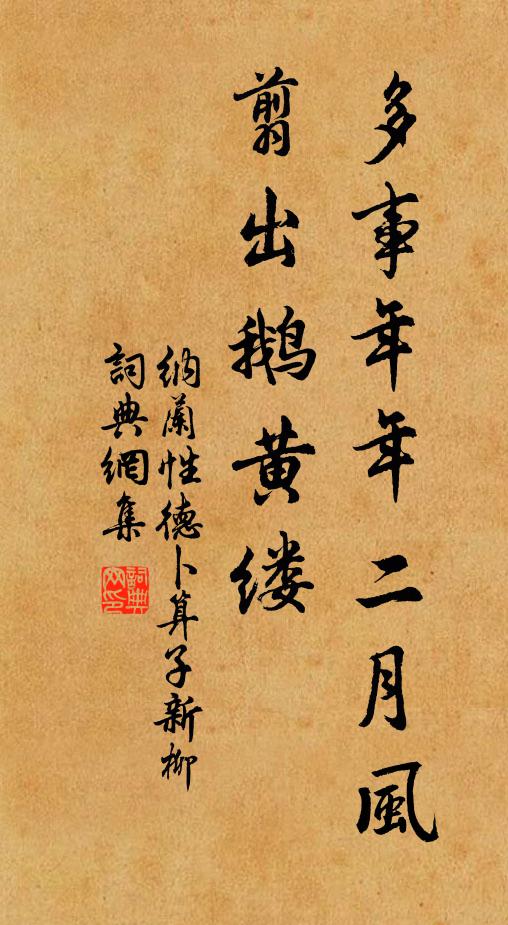 多事年年二月風
翦出鹅黄缕
納蘭性德卜算子新柳
詞典網集
詞典网印